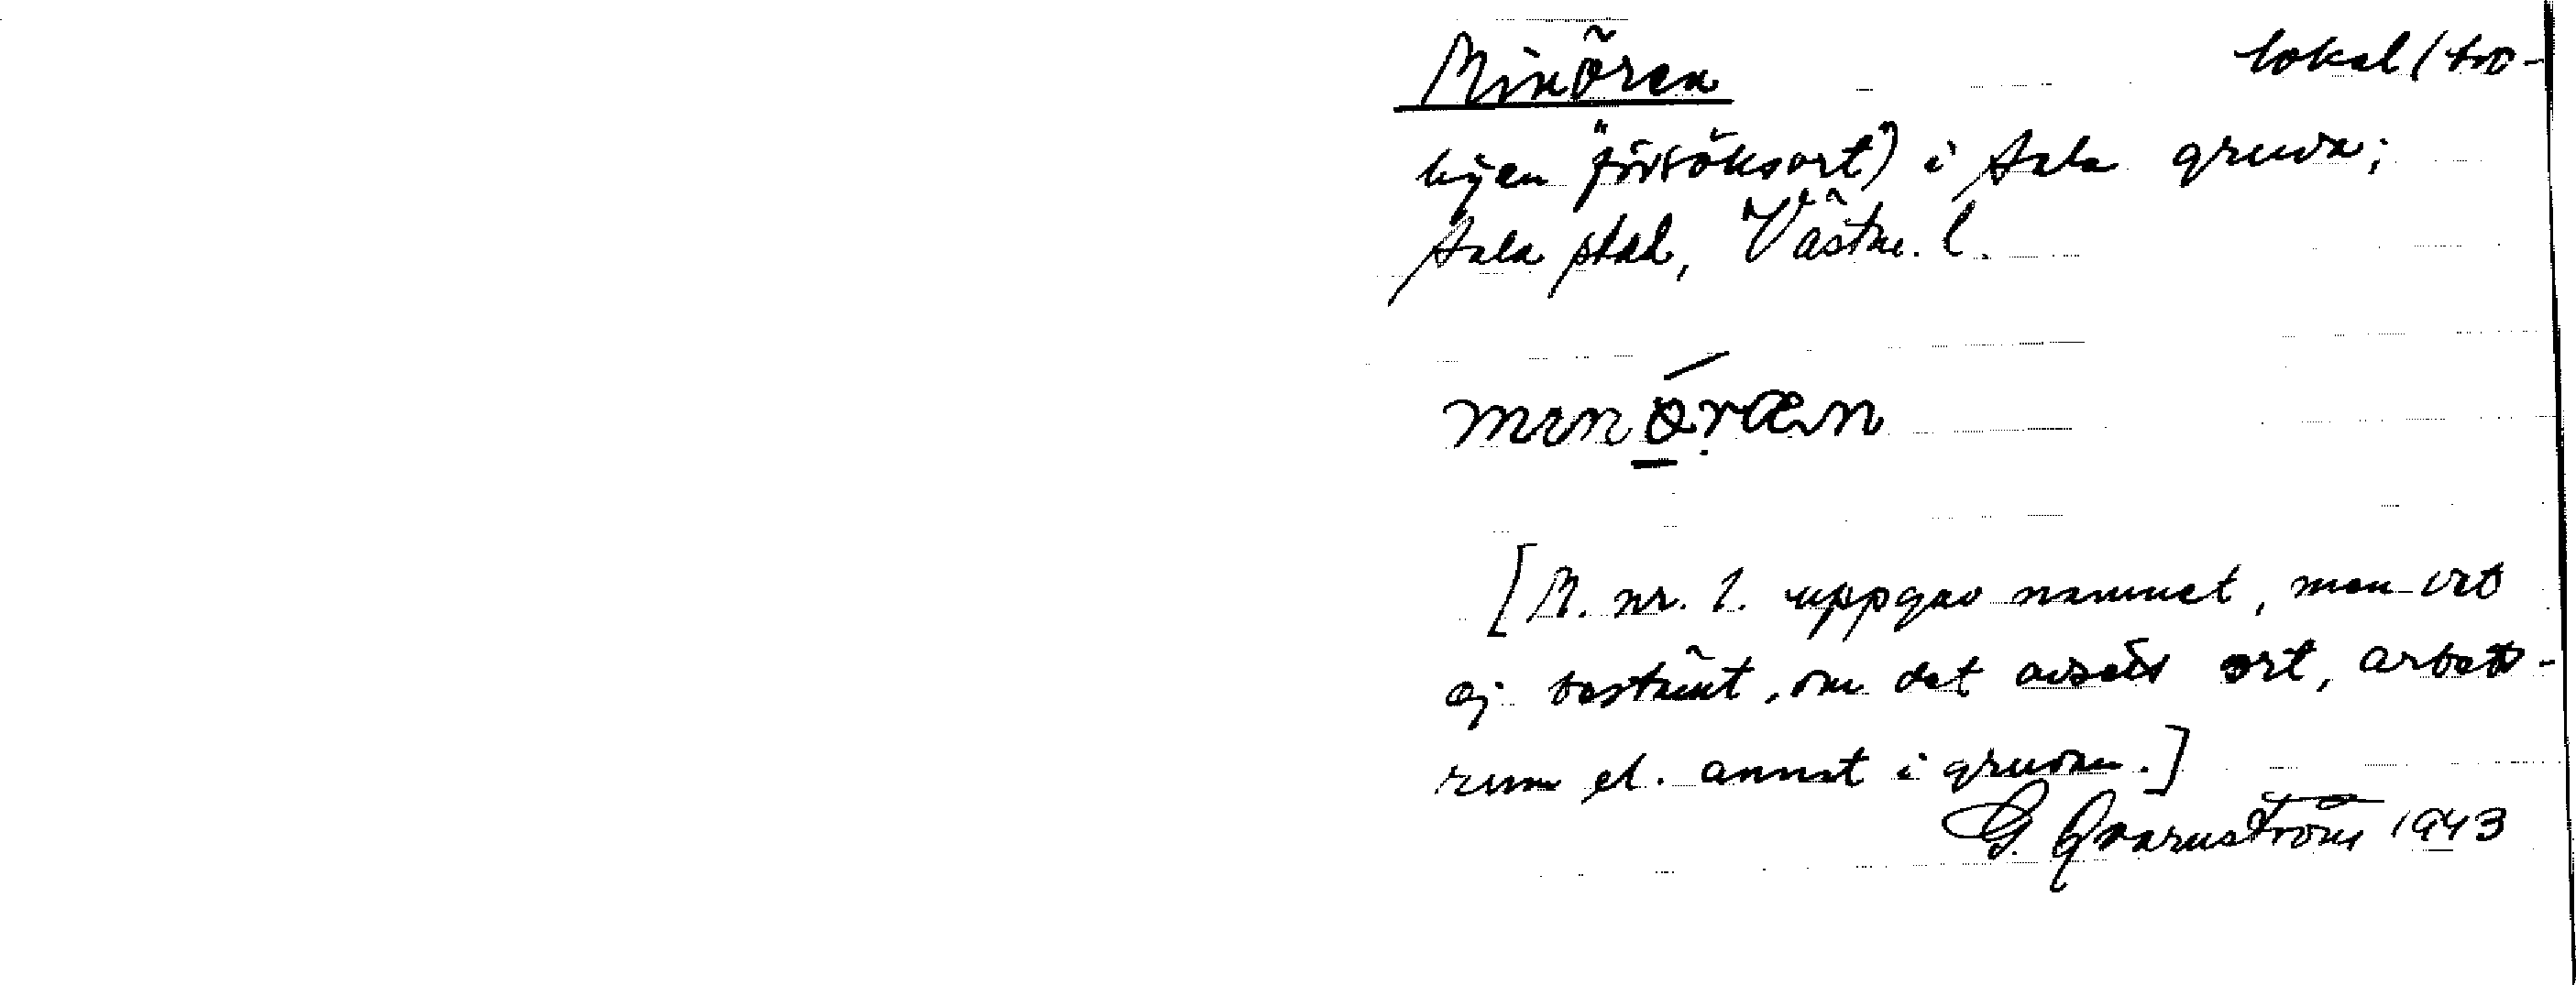 Minören lokal (tro-
ligen "försöksort") i Sala gruva;
Sala stad, Västm. l.
[M. nr. 1. uppgav namnet, men vet
ej bestämt, om det avsees ort, arbets-
rum el. annat i gruvan.]
G. Qvarnström 1943